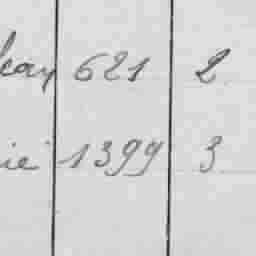 ean 621 2
ie 1399 3